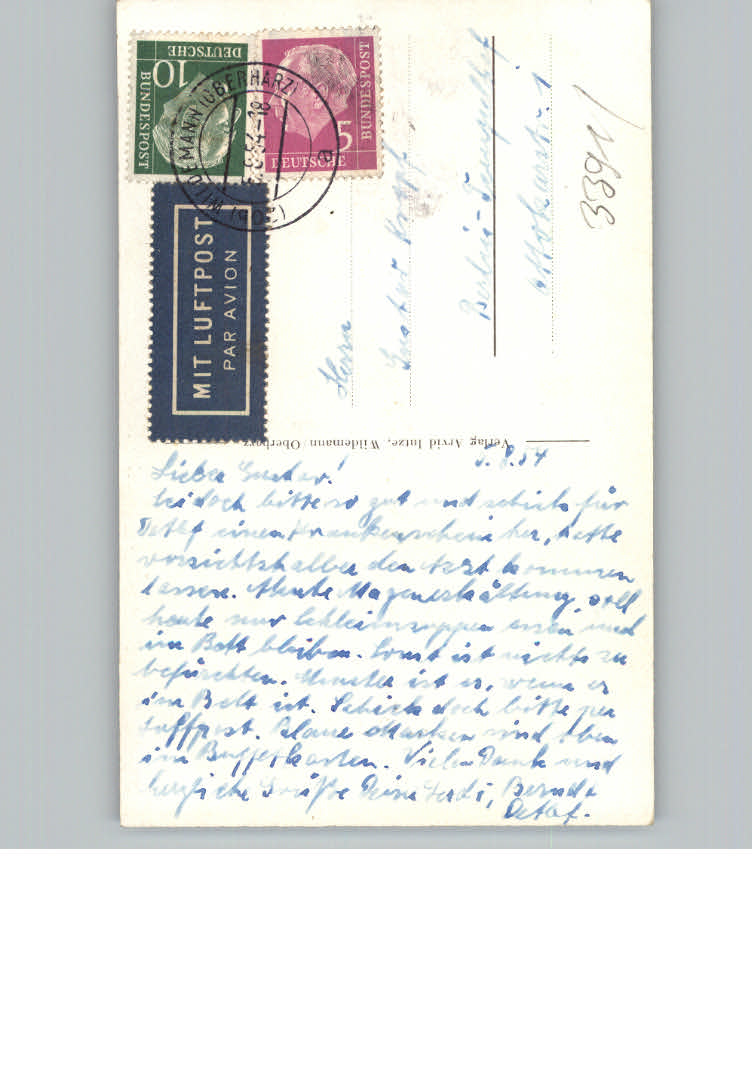 DEUTSCHE
BUNDESPOST
10
BUNDESPOST
DEUTSCHE
5
(20b) WILDEMANN (OBERHARZ)
a
MIT LUFTPOST
PAR AVION
Herrn
Gustav
Berlin-Tempelhof
3391
Verlag Arvid Intze, Wildemann/Oberharz
5.8.54
Lieber Gustav!
Sei doch bitte so gut und schick für
Detlef einen Krankenschein her, hatte
vorsichtshalber den Arzt kommen
lassen. Magenerkältung, soll
heute nur Schleimsuppen essen und
im Bett bleiben. Sonst ist nichts zu
befürchten. Munter ist er, wenn er
im Bett ist. Schick doch bitte per
Luftpost. Blaue Marken sind oben
im Buffetkasten. Vielen Dank und
herzliche Grüße Deine Gerdi, Bernd +
Detlef.